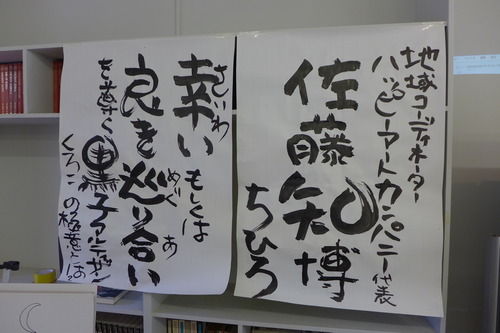 地域コーディネーター
ハッピーアートカンパニー代表
佐藤知博
ちひろ
さいわ
幸い
もしくは
めぐ あ
良き巡り合い
を導く、黒子アルティザン
くろこ
の極意とは